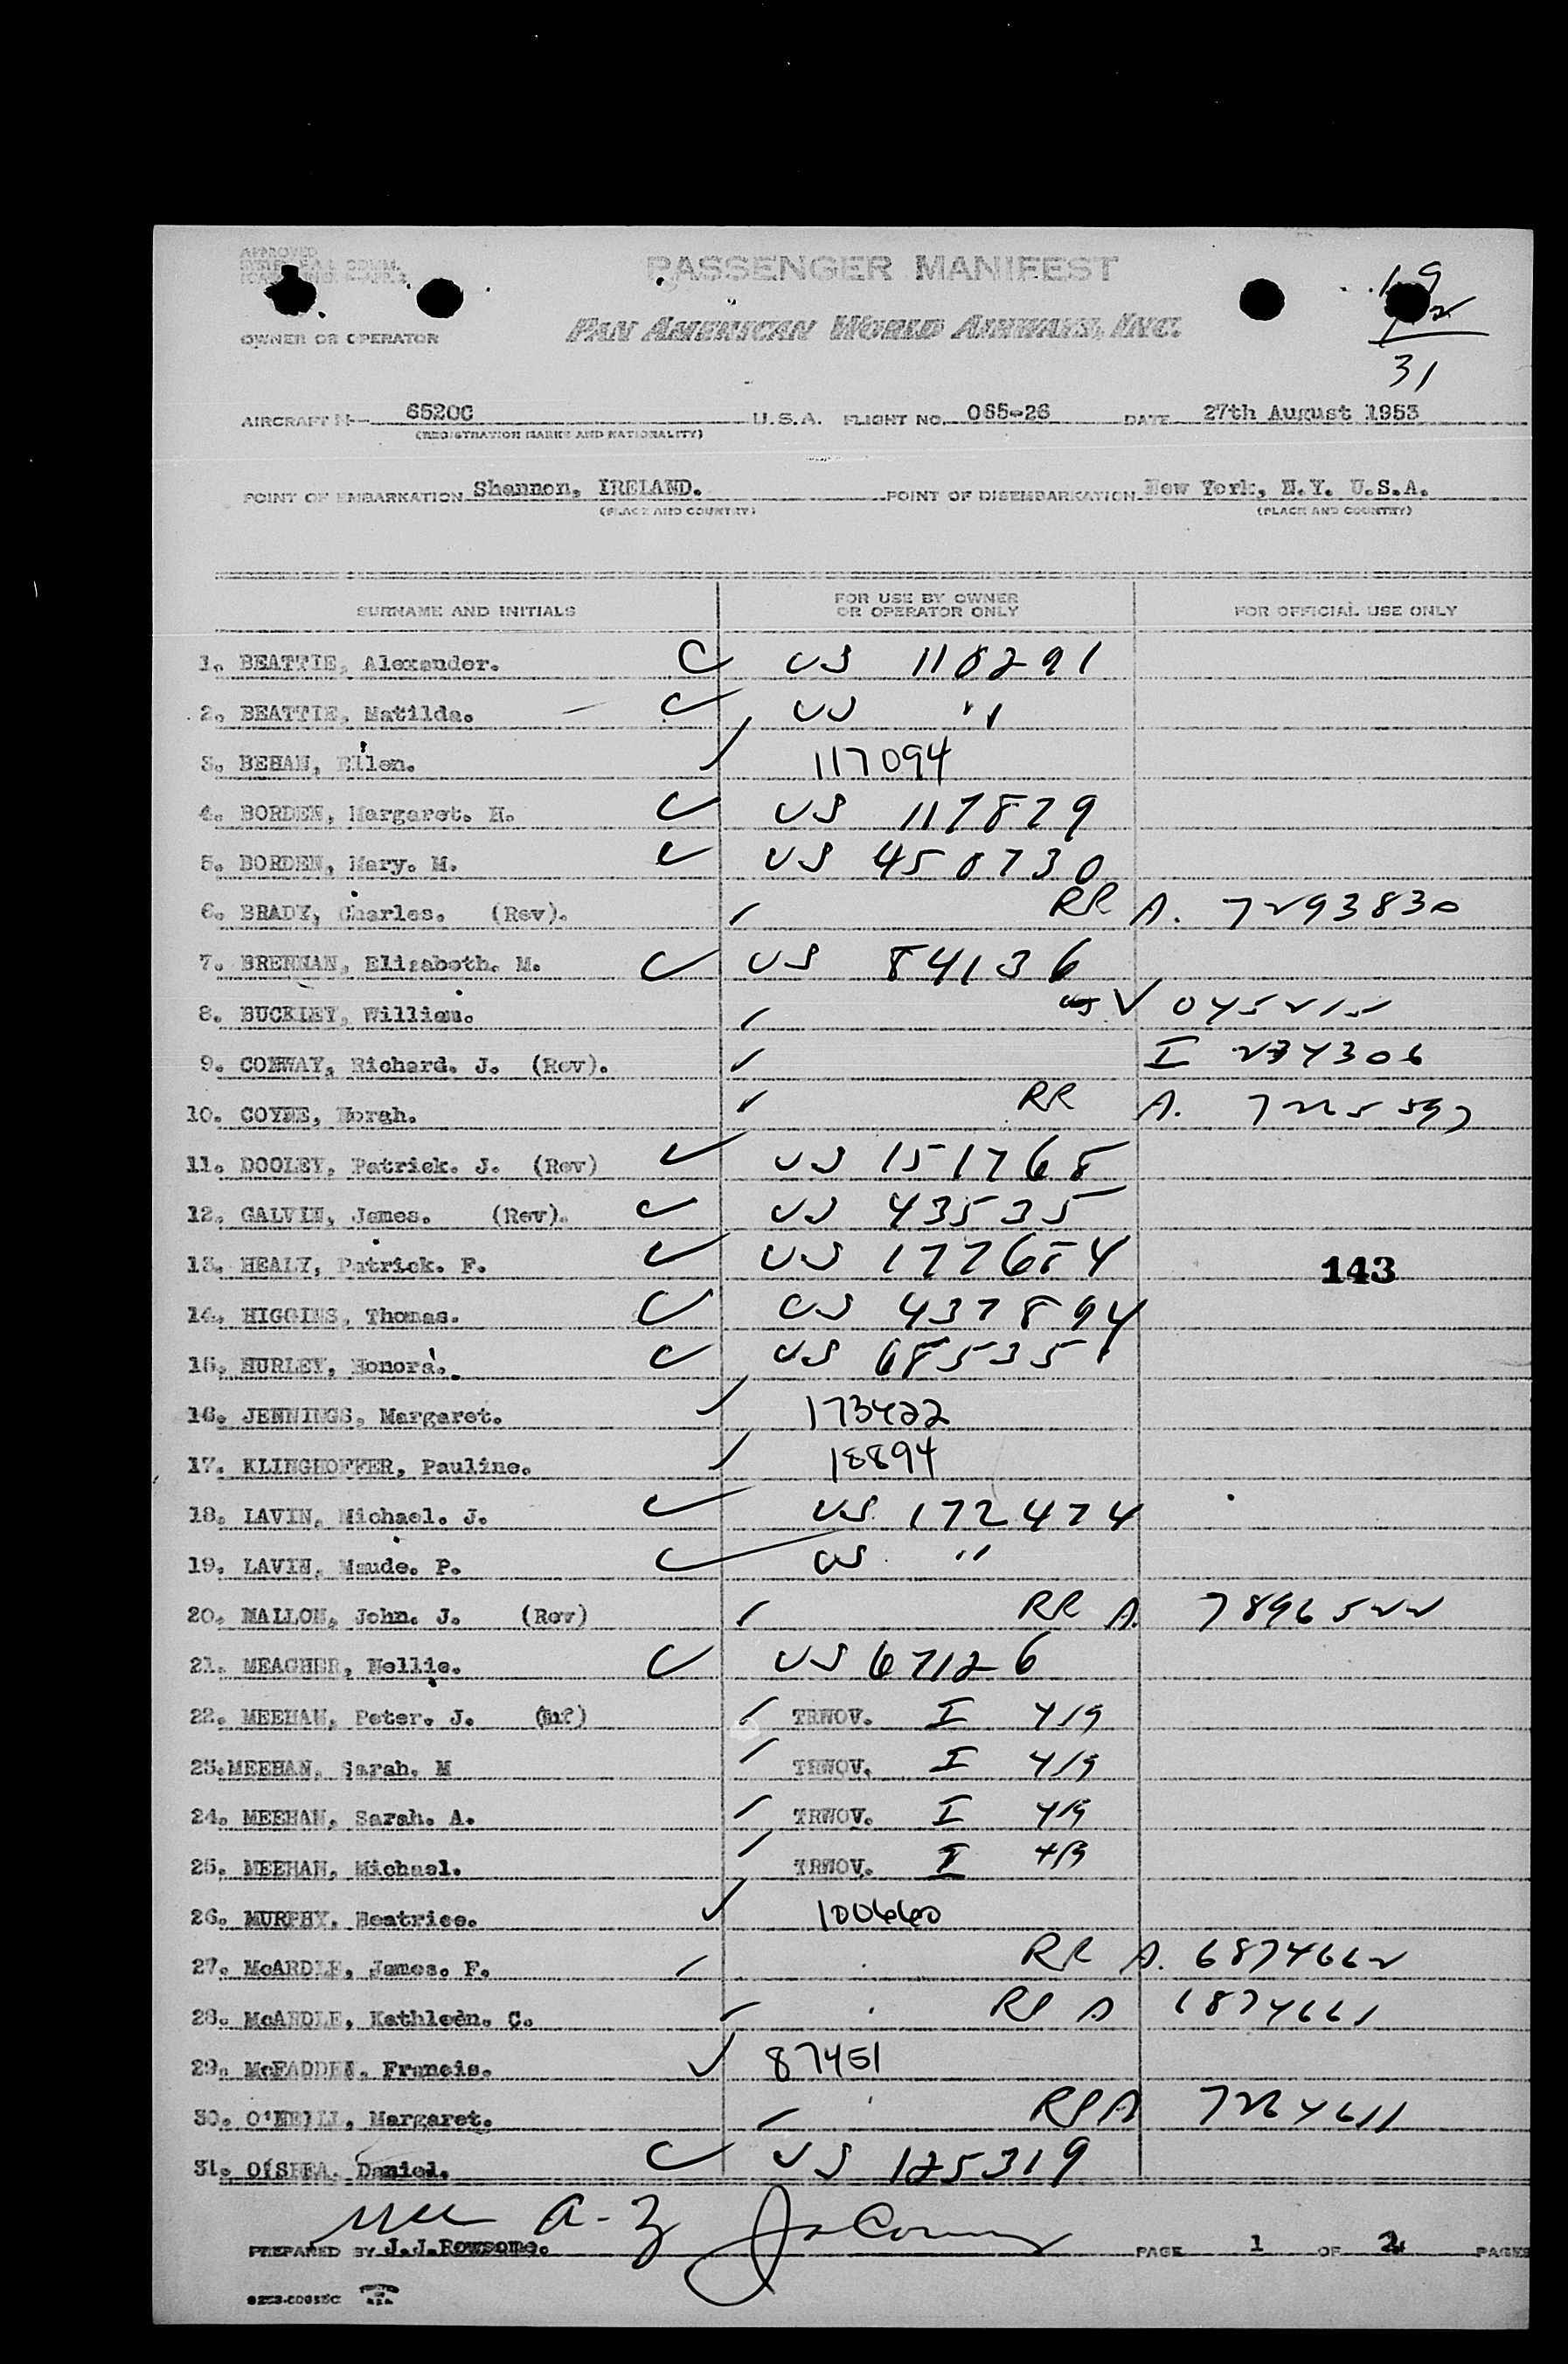 APPROVED
PASSENGER MANIFEST
19
12
31
OWNER OR OPERATOR PAN AMERICAN WORLD AIRWAYS, INC.
AIRCRAFT N— 6520C U.S.A. FLIGHT NO. 065-26 DATE 27th August 1953
(REGISTRATION MARKS AND NATIONALITY)
POINT OF EMBARKATION Shannon, IRELAND. POINT OF DISEMBARKATION New York, N.Y. U.S.A.
(PLACE AND COUNTRY) (PLACE AND COUNTRY)
SURNAME AND INITIALS FOR USE BY OWNER OR OPERATOR ONLY FOR OFFICIAL USE ONLY
1. BEATTIE, Alexander. US 118291
2. BEATTIE, Matilda. US "
3. BEHAN, Ellen. 117094
4. BORDEN, Margaret. H. US 117879
5. BORDEN, Mary. M. US 450730
6. BRADY, Charles. (Rev). RR A. 7293830
7. BRENNAN, Elizabeth. M. US 84136
8. BUCKLEY, William. V
9. CONWAY, Richard. J. (Rev). I
10. COYNE, Norah. RR A. 7225597
11. DOOLEY, Patrick. J. (Rev) US 151768
12. GALVIN, James. (Rev). US 43535
13. HEALY, Patrick. F. US 143
14. HIGGINS, Thomas. US 437894
15. HURLEY, Honora. US 68535
16. JENNINGS, Margaret. 173422
17. KLINGHOFFER, Pauline. 18894
18. LAVIN, Michael. J. US 172474
19. LAVIN, Maude. P. US "
20. MALLON, John. J. (Rev) RR A. 7896522
21. MEAGHER, Nellie. US 67126
22. MEEHAN, Peter. J. TRWOV. I 4/9
23. MEEHAN, Sarah. M TRWOV. I 4/9
24. MEEHAN, Sarah. A. TRWOV. I 4/9
25. MEEHAN, Michael. TRWOV. I 4/9
26. MURPHY, Beatrice. 100660
27. McARDLE, James. F. RR A. 6874662
28. McARDLE, Kathleen. C. RR A 6874661
29. McFADDEN, Francis. 87451
30. O'NEILL, Margaret. RR A 7264611
31. O'SHEA, Daniel. US 125319
a-z
PREPARED BY J.J.Rowsome. PAGE 1 OF 2 PAGES